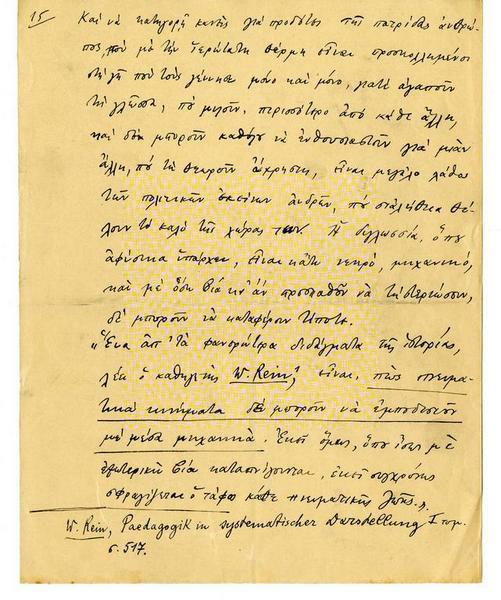 15 Καὶ νὰ κατηγορῇ κανεὶς γιὰ προδότες τῆς πατρίδας ἀνθρώ-
πους, ποὺ μὲ τὴν ἱερώτατη θέρμη εἶναι προσκολλημένοι
στὴ γῆ ποὺ τοὺς γέννησε μόνο καὶ μόνο, γιατὶ ἀγαποῦν
τὴ γλῶσσα, ποὺ μιλοῦν, περισσότερο ἀπὸ κάθε ἄλλη,
καὶ δὲν μποροῦν καθόλου νὰ ἐνθουσιαστοῦν γιὰ μιὰν
ἄλλη, ποὺ τὴ θεωροῦν ἄχρηστη, εἶναι μεγάλο λάθος
τῶν πολιτικῶν ἐκείνων ἀνδρῶν, ποὺ στ' ἀλήθεια θέ-
λουν τὸ καλὸ τῆς χώρας των. Ἡ διγλωσσία, ὅπου
ἀφύσικα ὑπάρχει, εἶναι κάτι νεκρό, μηχανικό,
καὶ μὲ ὅση βία κι' ἂν προσπαθοῦν νὰ τὴ στεριώσουν,
δὲ μποροῦν νὰ καταφέρουν τίποτε.
„Ἕνα ἀπ' τὰ φανερώτερα διδάγματα τῆς ἱστορίας,
λέει ὁ καθηγητὴς W. Rein, εἶναι, πὼς πνευμα-
τικὰ κινήματα δὲ μποροῦν νὰ ἐμποδιστοῦν
μὲ μέσα μηχανικά. Ἐκεῖ ὅμως, ὅπου ἴσως μὲ
ἐξωτερικὴ βία καταπνίγονται, ἐκεῖ συγχρόνως
σφραγίζεται ὁ τάφος κάθε πνευματικῆς ζωῆς.„
W. Rein, Paedagogik in systematischer Darstellung I τομ.
σ. 517.